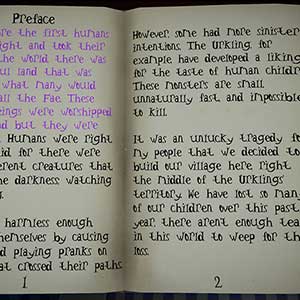 Preface
the first humans
ight and took their
the world there was
ul land that was
what many would
all the Fae These
eings were worshipped
d but they were
Humans were right
id for there were
erent creatures that
he darkness watching
harmless enough
hemselves by causing
d playing pranks on
at crossed their paths.
1
However, some had more sinister
intentions. The Urkling, for
example have developed a liking
for the taste of human childr
These monsters are small
unnaturally fast and impossible
to kill.
It was an unlucky tragedy fo
my people that we decided to
build our village here right
the middle of the Urklings
territory. We have lost so man
of our children over this past
year, there arent enough tea
in this world to weep for th
loss.
2